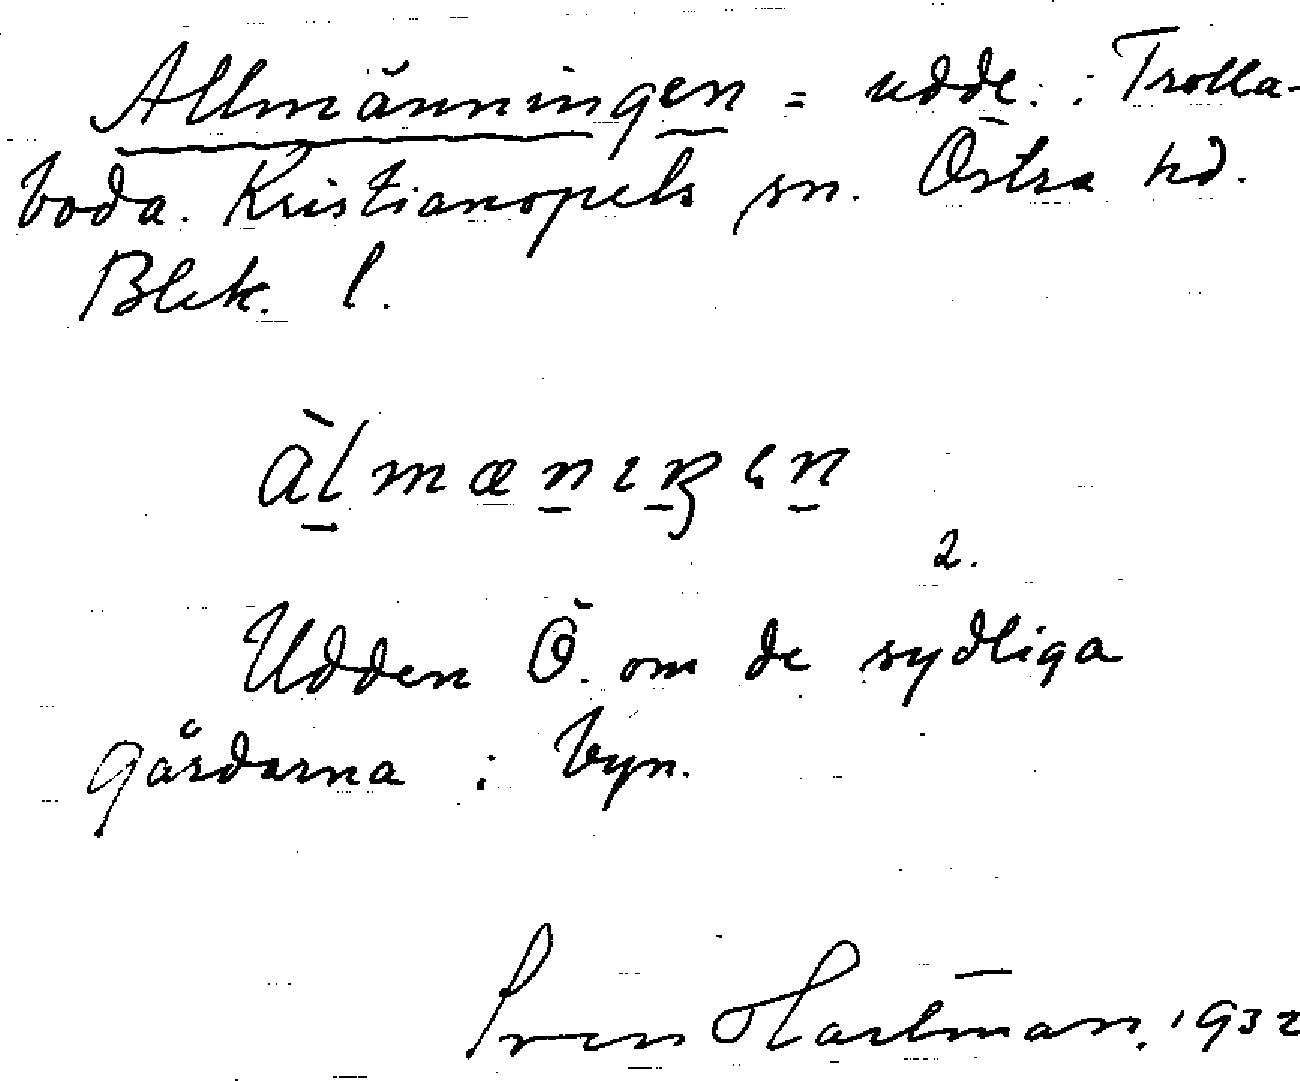 Allmänningen = udde i Trolla-
boda. Kristianopels sn. Östra hd.
Blek. l.
àlmænıŋɛn
2.
Udden Ö. om de sydliga
gårdarna i byn.
Sven Hartman. 1932